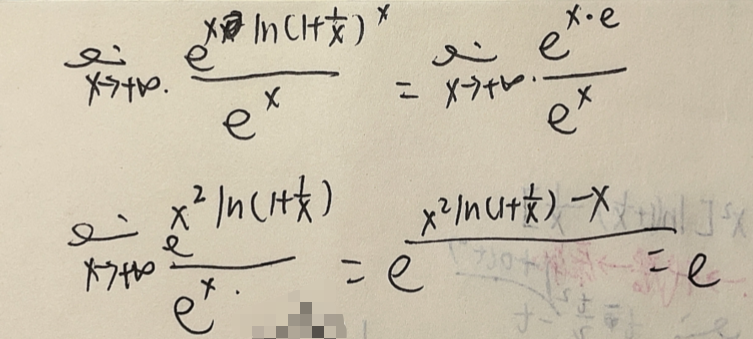 lim x→+∞. e^{x ln(1+1/x)^x} / e^x = lim x→+∞. e^{x·e} / e^x
lim x→+∞ e^{x² ln(1+1/x)} / e^x. = e^{x² ln(1+1/x) − x} = e